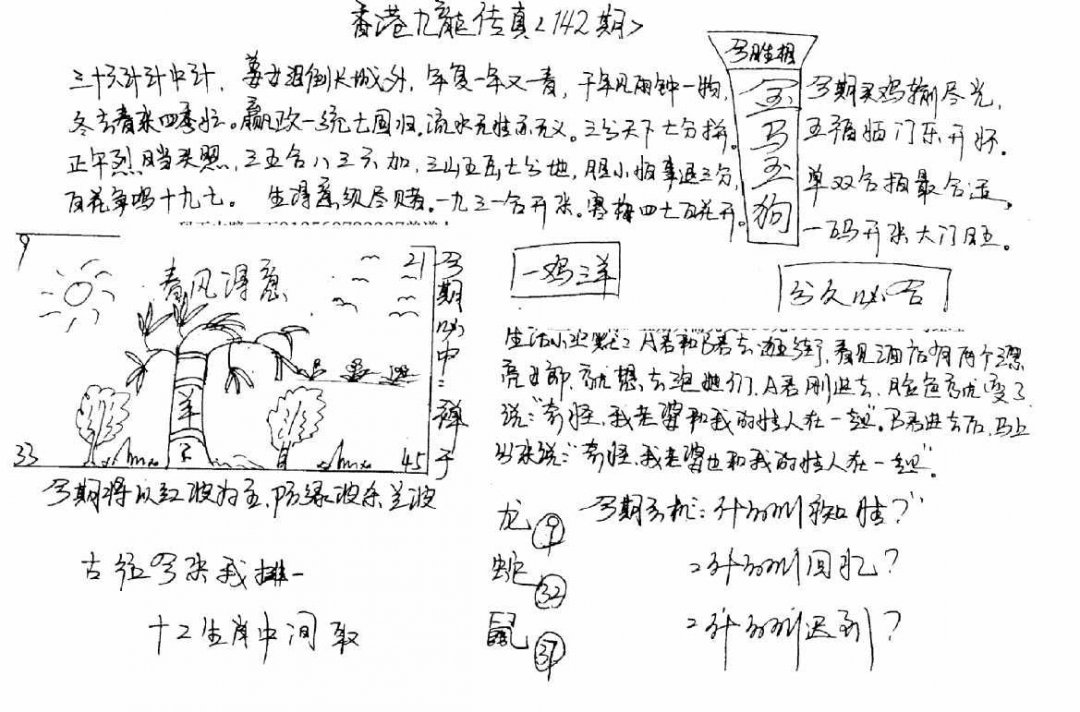 香港九龍传真<142期>
三十六计计中计，姜女泪倒长城外，年复一年又一春，千年
冬去春来四季忙。赢政一统七国归，流水无情亦无义。三分天下七分拼。
正午烈日当头照，三五合八三六加，三山五瓦七分地，胆小怕事退三分，
百花争鸣十九七。生得意须尽赌。一九三一合开张。寒梅四七百花开。
今期生相
金
马
玉
狗
今期买鸡输尽光，
五福
单双合报最合适，
一码开张大门旺。
9
21
春风得意
羊
33
45
今期必中：禅子
今期将以红波为主，防绿波杀兰波
一鸡三羊
分久必合
生活小 A君和B君去逛街，看见店有两个漂
亮女郎，就想去泡她们，A君刚进去，脸色就变了
说："奇怪，我老婆和我的情人在一起"。B君进去后，马上
出来说："奇怪，我老婆也和我的情人在一起"。
龙 9
蛇 32
鼠 37
今期玄机：什么叫知情？
什么叫回忆？
什么叫迟到？
古往今来我排一
十二生肖中间取